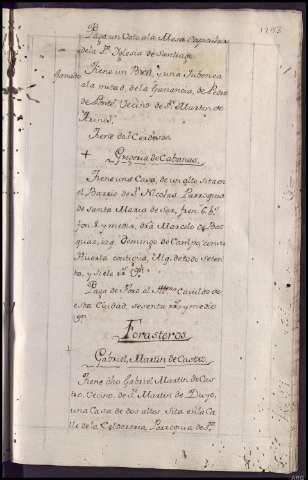 Paga un Voto a la Mesa Capitular
de la Sta. Iglesia de Santiago
Ganado Tiene un Buey, y una Jubenca
a la mitad, de la Ganancia, de Pedro
de Vecino de Sn. Martin de
Tiene dos Cerdosos
+ Gregoria de Cabanas
Tiene una Casa, de un alto sita en
el Barrio de Sn. Nicolas Parroquia
de Santa Maria de Sar, fren. 6 bs.
fon. 8. y media, dra. Marcelo de
izq. Domingo de Campo, con su
Huerta contigua, Alq. de todo setenta
y siete rs. Vn.
Paga de Foro al Cavildo de
esta Ciudad, sesenta rs. y medio
Vn.
Forasteros
+ Gabriel Martin de Castro
Tiene dho Gabriel Martin de Cas
tro, Vecino, de Sn. Martin de Duyo,
una Casa de dos altos Sita en la Ca
lle de la Caldereria, Parroquia de Sn.